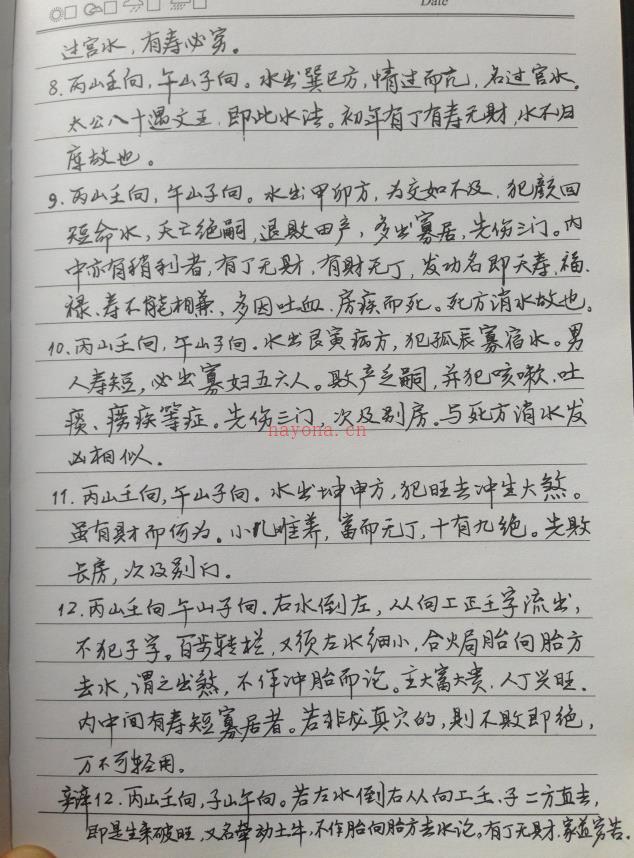 Date
过宫水，有寿必穷。
8. 丙山壬向，午山子向。水出巽巳方，情过而亢，名过宫水。
太公八十遇文王，即此水法。初年有丁有寿无财，水不归
库故也。
9. 丙山壬向，午山子向。水出甲卯方，为交如不及，犯颜回
短命水，夭亡绝嗣，退败田产，多出寡居，先伤三门。内
中亦有稍利者，有丁无财，有财无丁，发功名即夭寿，福、
禄、寿不能相兼，多因吐血、房疾而死。死方消水故也。
10. 丙山壬向，午山子向。水出艮寅病方，犯孤辰寡宿水。男
人寿短，必出寡妇五六人。败产乏嗣，并犯咳嗽、吐
痰、痨疾等症。先伤三门，次及别房。与死方消水发
凶相似。
11. 丙山壬向，午山子向。水出坤申方，犯旺去冲生大煞。
虽有财而何为。小儿难养，富而无丁，十有九绝。先败
长房，次及别门。
12. 丙山壬向午山子向。右水倒左，从向上正壬字流出，
不犯子字。百步转栏，又须左水细小，合火局胎向胎方
去水，谓之出煞，不作冲胎而论。主大富大贵，人丁兴旺。
内中间有寿短寡居者。若非龙真穴的，则不败即绝，
万不可轻用。
辩12. 丙山壬向，子山午向。若左水倒右从向上壬、子二方直去，
即是生来破旺，又名牵动土牛，不作胎向胎方去水论。有丁无财，家道穷苦。
nayona.cn